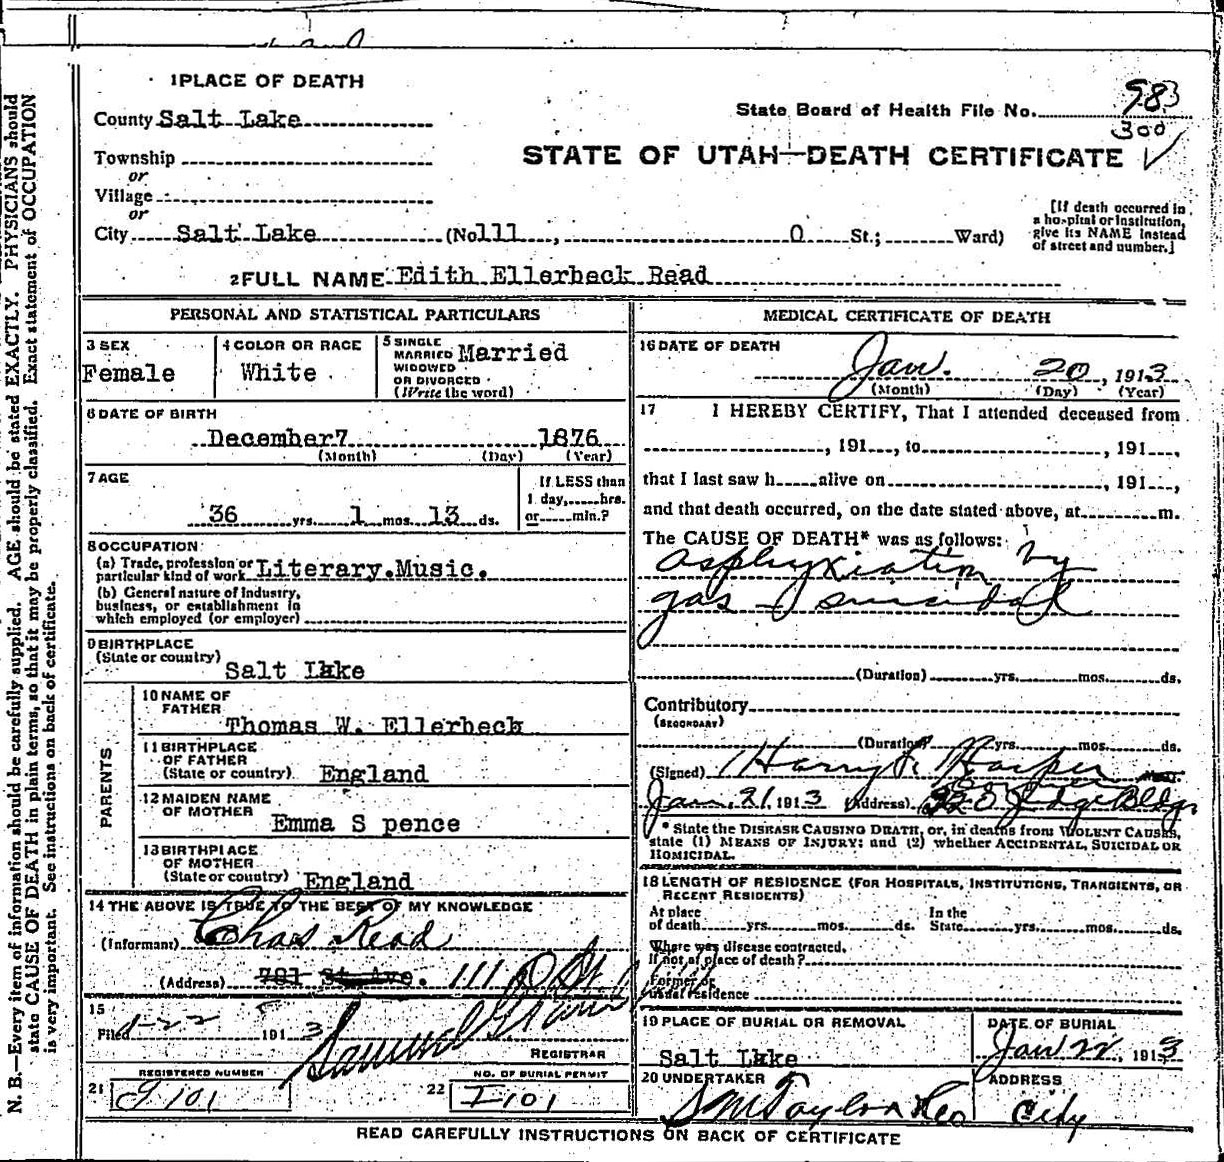 1 PLACE OF DEATH
County Salt Lake
State Board of Health File No. 983
300
Township
or
STATE OF UTAH—DEATH CERTIFICATE
Village
or
City Salt Lake (No 111 , O St.; Ward)
[If death occurred in
a hospital or institution,
give its NAME instead
of street and number.]
2 FULL NAME Edith Ellerbeck Read
PERSONAL AND STATISTICAL PARTICULARS
3 SEX
Female
4 COLOR OR RACE
White
5 SINGLE
MARRIED
WIDOWED
OR DIVORCED
(Write the word)
Married
6 DATE OF BIRTH
December 7 1876
(Month) (Day) (Year)
7 AGE
36 yrs. 1 mos. 13 ds.
If LESS than
1 day, hrs.
or min.?
8 OCCUPATION
(a) Trade, profession or
particular kind of work Literary.Music.
(b) General nature of Industry,
business, or establishment in
which employed (or employer)
9 BIRTHPLACE
(State or country)
Salt Lake
PARENTS
10 NAME OF
FATHER
Thomas W. Ellerbeck
11 BIRTHPLACE
OF FATHER
(State or country) England
12 MAIDEN NAME
OF MOTHER
Emma S pence
13 BIRTHPLACE
OF MOTHER
(State or country) England
14 THE ABOVE IS TRUE TO THE BEST OF MY KNOWLEDGE
(Informant) Chas Read
(Address) 781 St Ave. 111 O St
15
Filed 1-22 1913
REGISTRAR
REGISTERED NUMBER
21
NO. OF BURIAL PERMIT
22 I 101
MEDICAL CERTIFICATE OF DEATH
16 DATE OF DEATH
Jan. 20, 1913
(Month) (Day) (Year)
17 I HEREBY CERTIFY, That I attended deceased from
, 191 , to , 191 ,
that I last saw h alive on , 191 ,
and that death occurred, on the date stated above, at m.
The CAUSE OF DEATH* was as follows:
asphyxiation by
gas - suicidal
(Duration) yrs. mos. ds.
Contributory
(SECONDARY)
(Duration) yrs. mos. ds.
(Signed) Harry S. Harper
Jan. 21 1913 (Address) Judge Bldg.
* State the DISEASE CAUSING DEATH, or, in deaths from VIOLENT CAUSES,
state (1) MEANS OF INJURY; and (2) whether ACCIDENTAL, SUICIDAL OR
HOMICIDAL.
18 LENGTH OF RESIDENCE (FOR HOSPITALS, INSTITUTIONS, TRANSIENTS, OR
RECENT RESIDENTS)
At place
of death yrs. mos. ds.
In the
State yrs. mos. ds.
Where was disease contracted,
If not at place of death?
Former or
usual residence
19 PLACE OF BURIAL OR REMOVAL
Salt Lake
DATE OF BURIAL
Jan 22, 1913
20 UNDERTAKER
S M Taylor & Co
ADDRESS
City
READ CAREFULLY INSTRUCTIONS ON BACK OF CERTIFICATE
N. B.—Every item of information should be carefully supplied. AGE should be stated EXACTLY. PHYSICIANS should
state CAUSE OF DEATH in plain terms, so that it may be properly classified. Exact statement of OCCUPATION
is very important. See instructions on back of certificate.